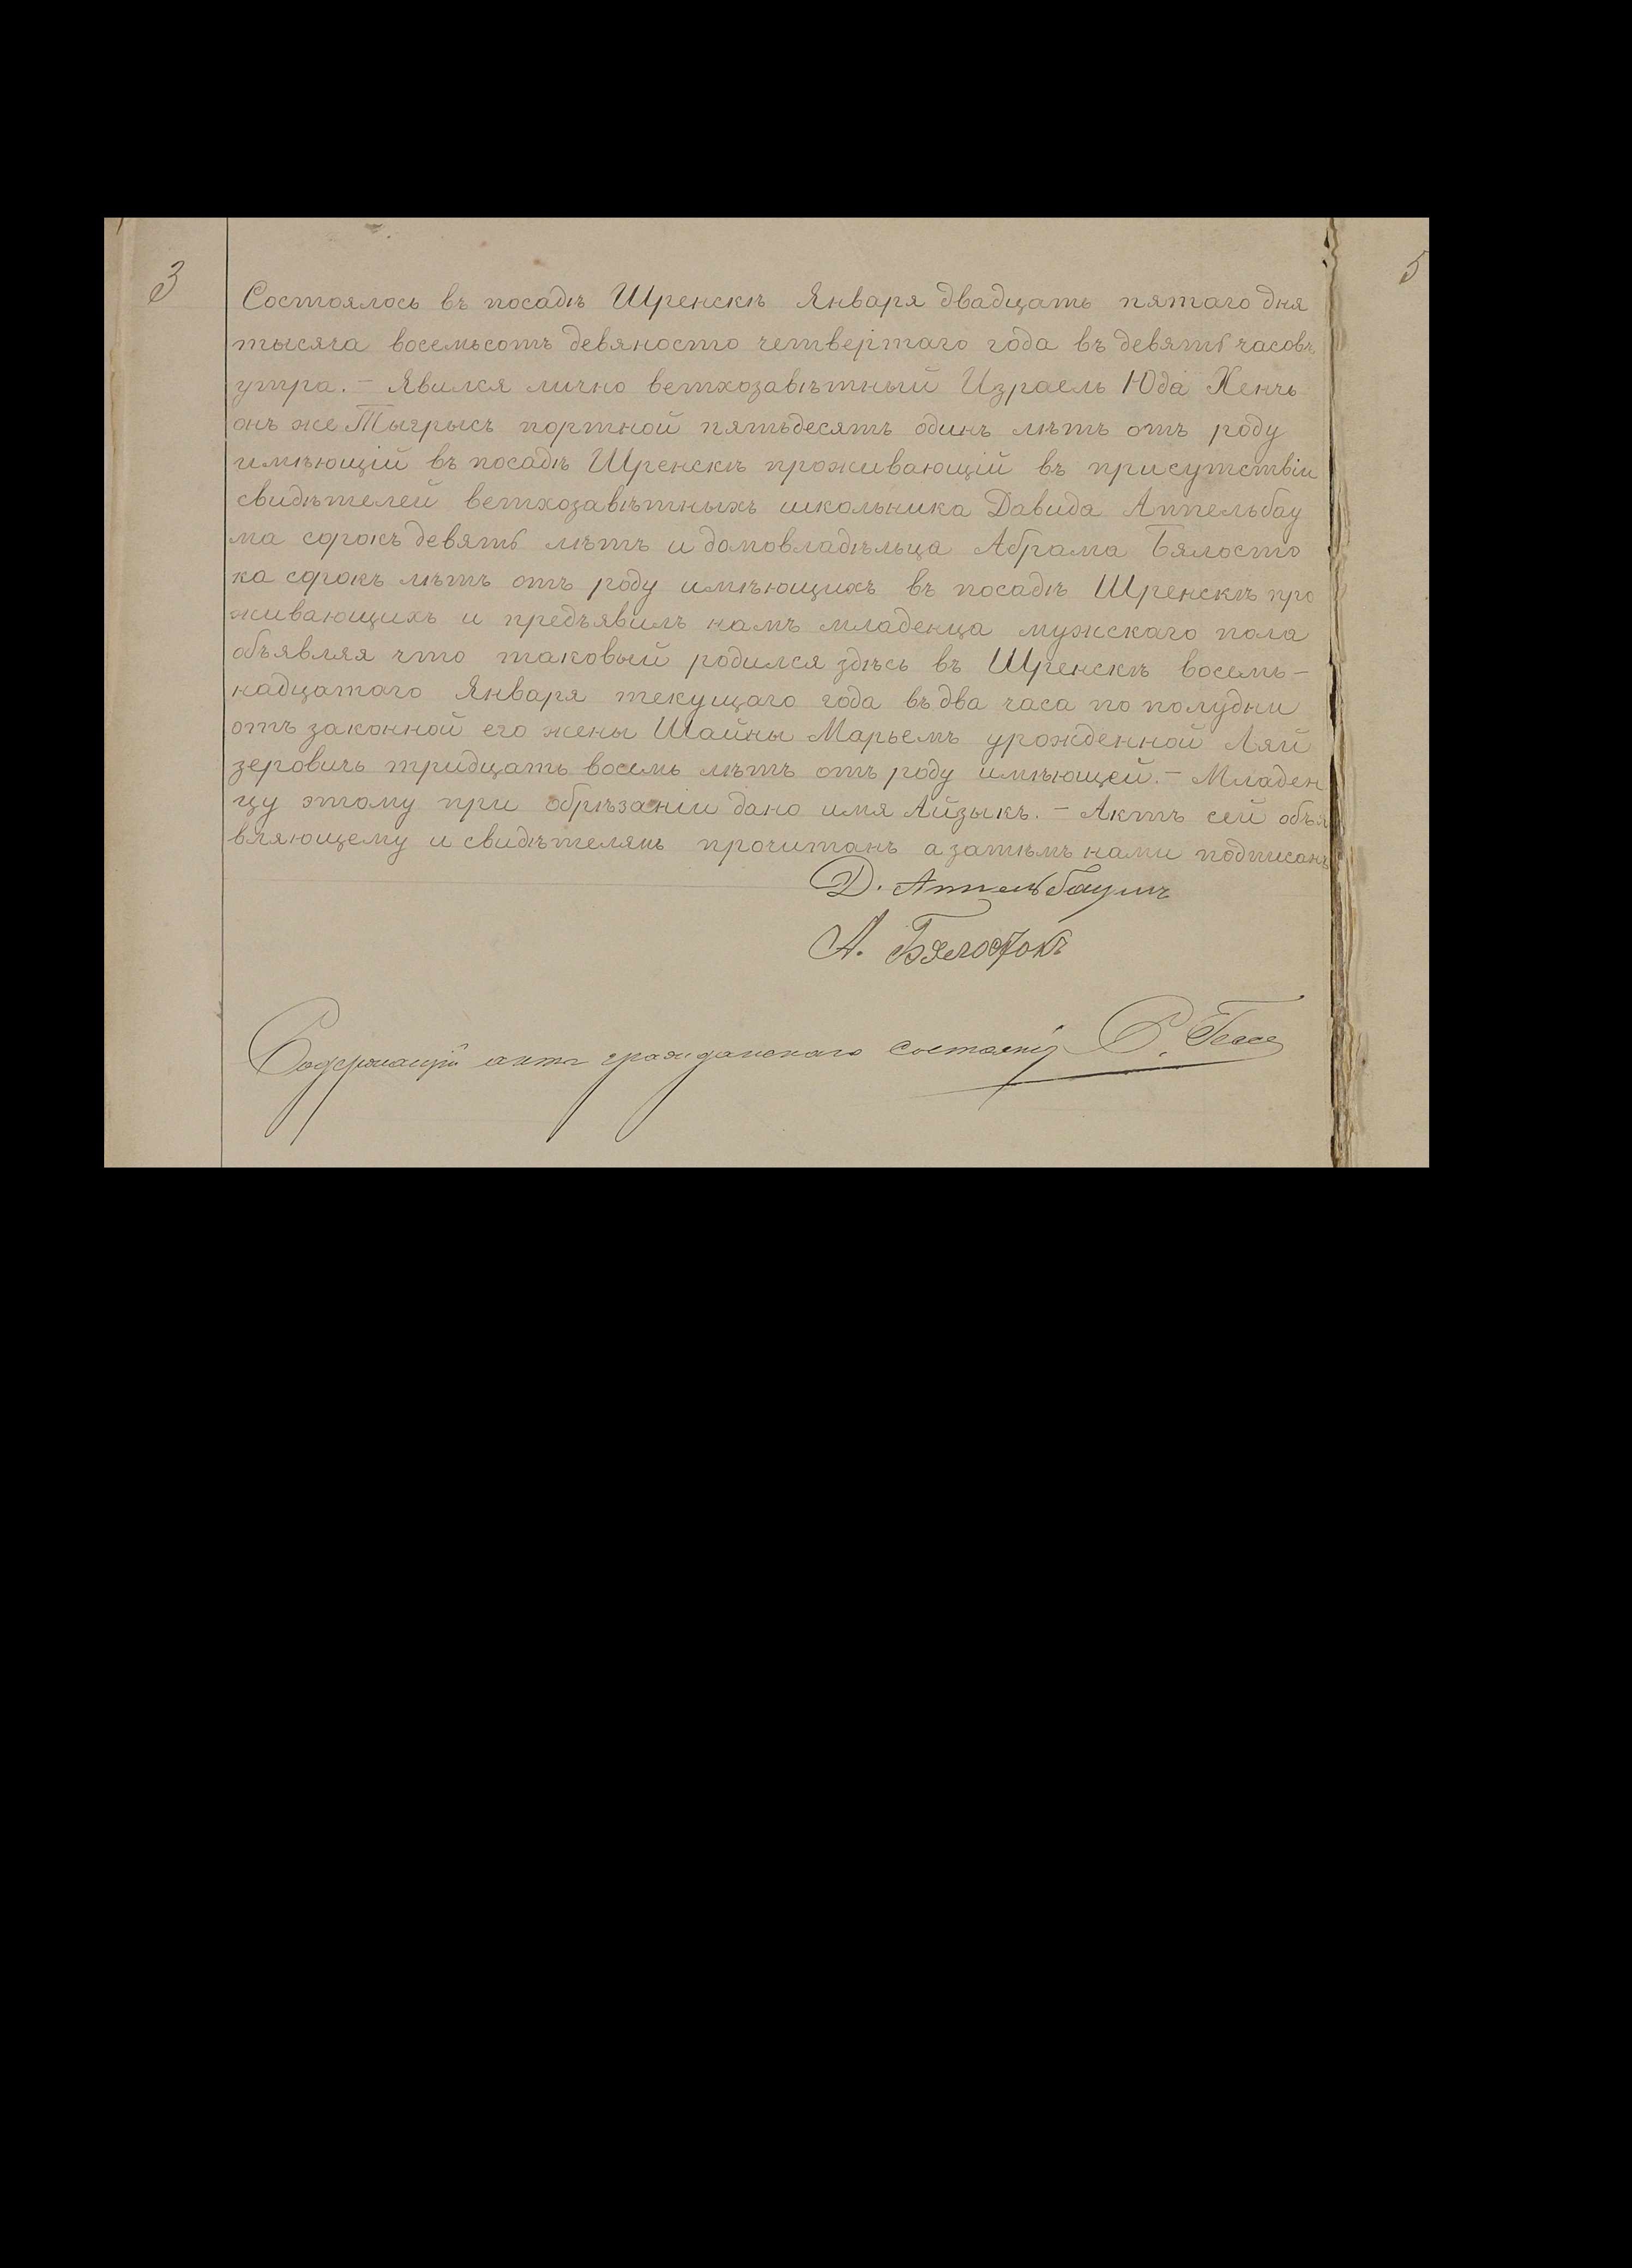 3
5
Состоялось въ посадѣ Шренскѣ Января двадцать пятаго дня
тысяча восемьсотъ девяносто четвертаго года въ девять часовъ
утра. – Явился лично ветхозавѣтный Израель Юда Хенчь
онъ же Тыгрысъ портной пятьдесятъ одинъ лѣтъ отъ роду
имѣющій въ посадѣ Шренскѣ проживающій въ присутствіи
свидѣтелей ветхозавѣтныхъ школьника Давида Аппельбау
ма сорокъ девять лѣтъ и домовладѣльца Абрама Бялосто
ка сорокъ лѣтъ отъ роду имѣющихъ въ посадѣ Шренскѣ про
живающихъ и предъявилъ намъ младенца мужскаго пола
объявляя что таковый родился здѣсь въ Шренскѣ восемь–
надцатаго Января текущаго года въ два часа по полудни
отъ законной его жены Шайны Марьемъ урожденной Ляй
зеровичь тридцать восемь лѣтъ отъ роду имѣющей. – Младен
цу этому при обрѣзаніи дано имя Айзыкъ. – Актъ сей объя
вляющему и свидѣтелямъ прочитанъ а затѣмъ нами подписанъ
Д. Аппельбаумъ
А. Бялостокъ
Содержащій акты гражданскаго состоянія